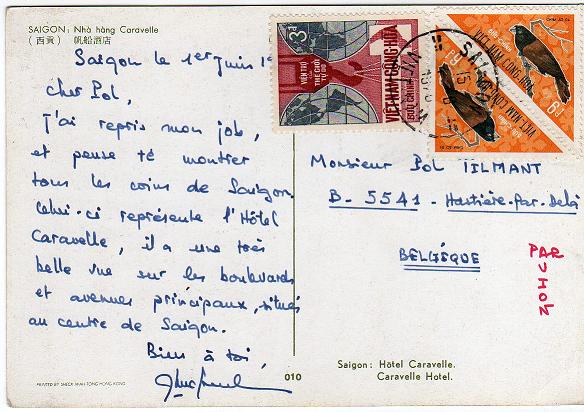 SAIGON: Nhà hàng Caravelle
(西貢) 帆船酒店
Saigon le 1er Juin
Cher Pol,
J'ai repris mon job,
et pense te montrer
tous les coins de Saigon.
Celui-ci représente l'Hôtel
Caravelle, il a une très
belle vue sur les boulevards
et avenues principaux, situés
au centre de Saigon.
Bien à toi,
PRINTED BY SHECK WAH TONG HONG KONG
010
3đ
VIỆN TRỢ THẾ GIỚI TỰ DO
VIỆT-NAM CỘNG-HÒA
BƯU-CHÍNH
VIỆT-NAM CỘNG-HÒA
VIỆT-NAM CỘNG-HÒA
SAIGON
Monsieur Pol TILMANT
B-5541 - Hastière-Par-Delà
BELGÉQUE
PAR
AVION
Saigon: Hôtel Caravelle.
Caravelle Hotel.